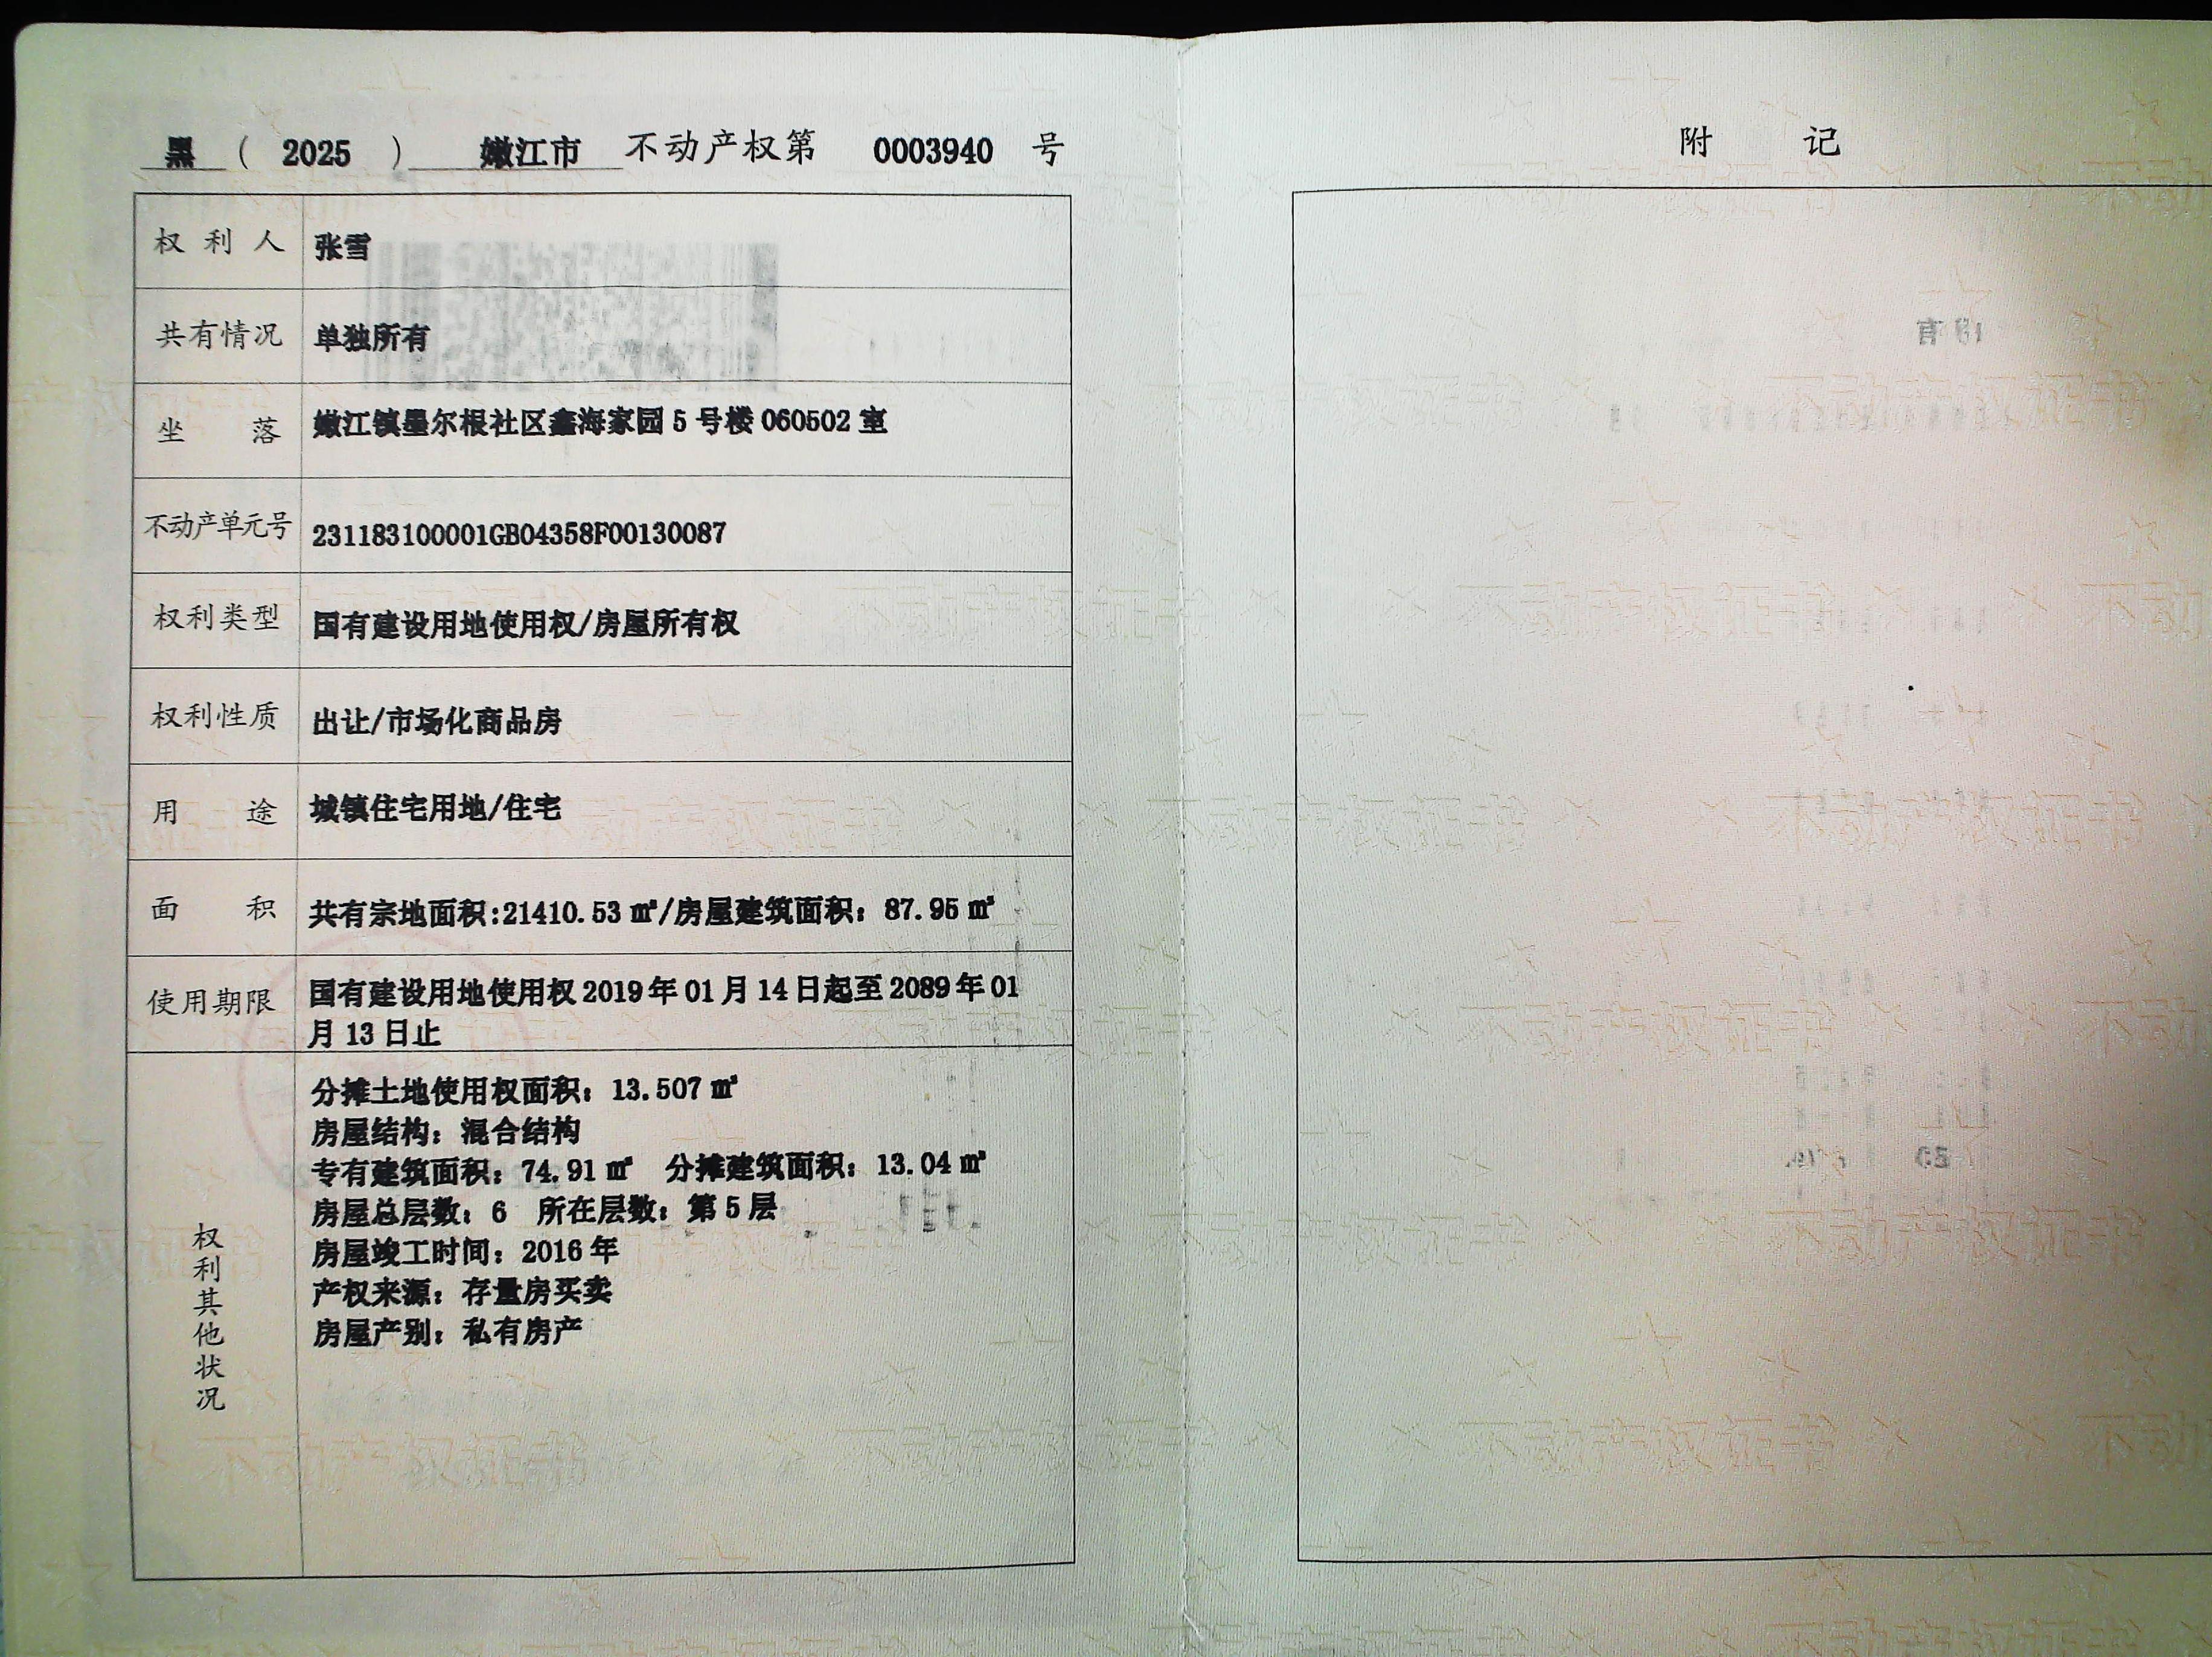 黑 ( 2025 ) 嫩江市 不动产权第 0003940 号
权利人 张雪
共有情况 单独所有
坐落 嫩江镇墨尔根社区鑫海家园 5 号楼 060502 室
不动产单元号 231183100001GB04358F00130087
权利类型 国有建设用地使用权/房屋所有权
权利性质 出让/市场化商品房
用途 城镇住宅用地/住宅
面积 共有宗地面积:21410.53 ㎡/房屋建筑面积：87.95 ㎡
使用期限 国有建设用地使用权 2019 年 01 月 14 日起至 2089 年 01
月 13 日止
权利其他状况
分摊土地使用权面积：13.507 ㎡
房屋结构：混合结构
专有建筑面积：74.91 ㎡ 分摊建筑面积：13.04 ㎡
房屋总层数：6 所在层数：第 5 层
房屋竣工时间：2016 年
产权来源：存量房买卖
房屋产别：私有房产
附记